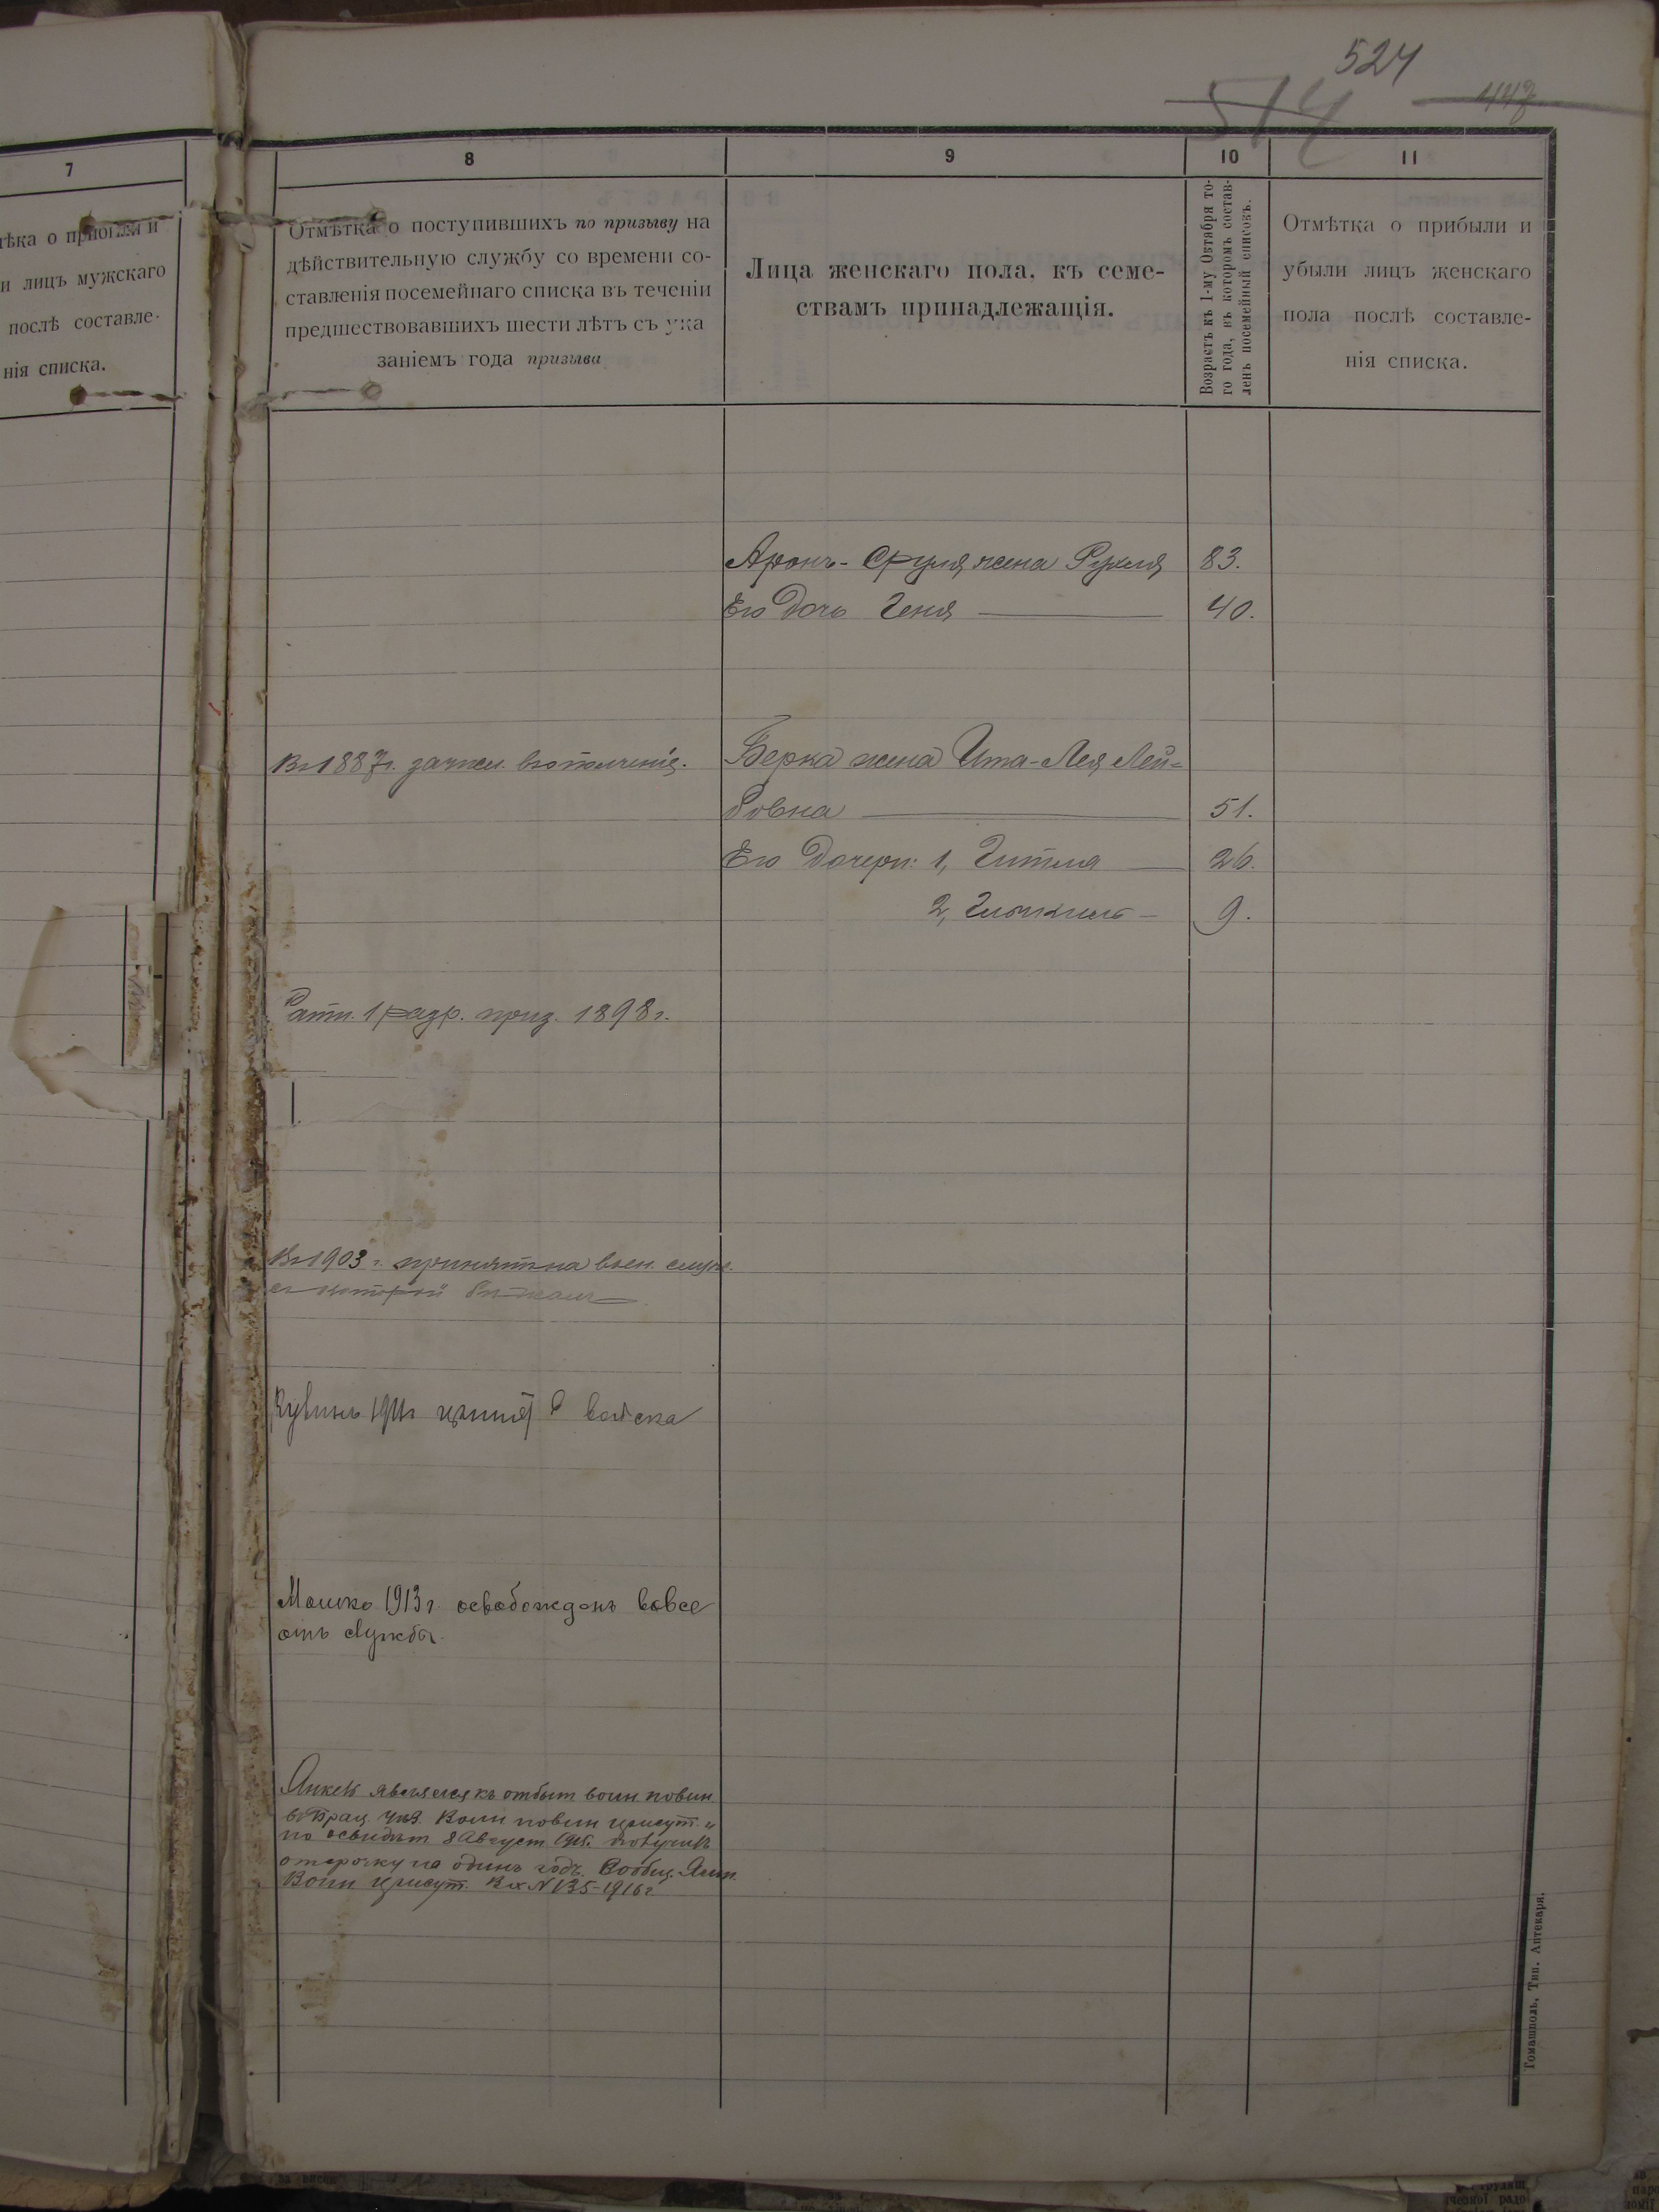 524
514
447
7
ѣка о прибыли и
и лицъ мужскаго
послѣ составле-
нія списка.
8
Отмѣтка о поступившихъ по призыву на
дѣйствительную службу со времени со-
ставленія посемейнаго списка въ теченіи
предшествовавшихъ шести лѣтъ съ ука
заніемъ года призыва
9
Лица женскаго пола, къ семе-
ствамъ принадлежащія.
10
Возрастъ къ 1-му Октября то-
го года, въ которомъ состав-
ленъ посемейный списокъ.
11
Отмѣтка о прибыли и
убыли лицъ женскаго
пола послѣ составле-
нія списка.
Аронъ-Сруля жена Рухля 83.
Его дочь Геня 40.
Въ 1887г. зачисл. въ ополченіе.
Берка жена Ита-Лея Лей-
бовна 51.
Его дочери: 1, Гитля 26.
2, 9.
Ратн. 1 разр. приз. 1898г.
Въ 1903 г. принятъ на воен. служ.
съ которой
1911г принят в войска
Мошко 1913г. освобожденъ вовсе
отъ службы.
Янкель явился къ отбыт воин. повин
въ Брац. уѣз. Воин повин присут. и
по освидѣт 8 Август 1915. получилъ
отсрочку на одинъ годъ. Сообщ. Ямп.
Воин присут. Вх N 135-1916г
Томашполь, Тип. Аптекаря.